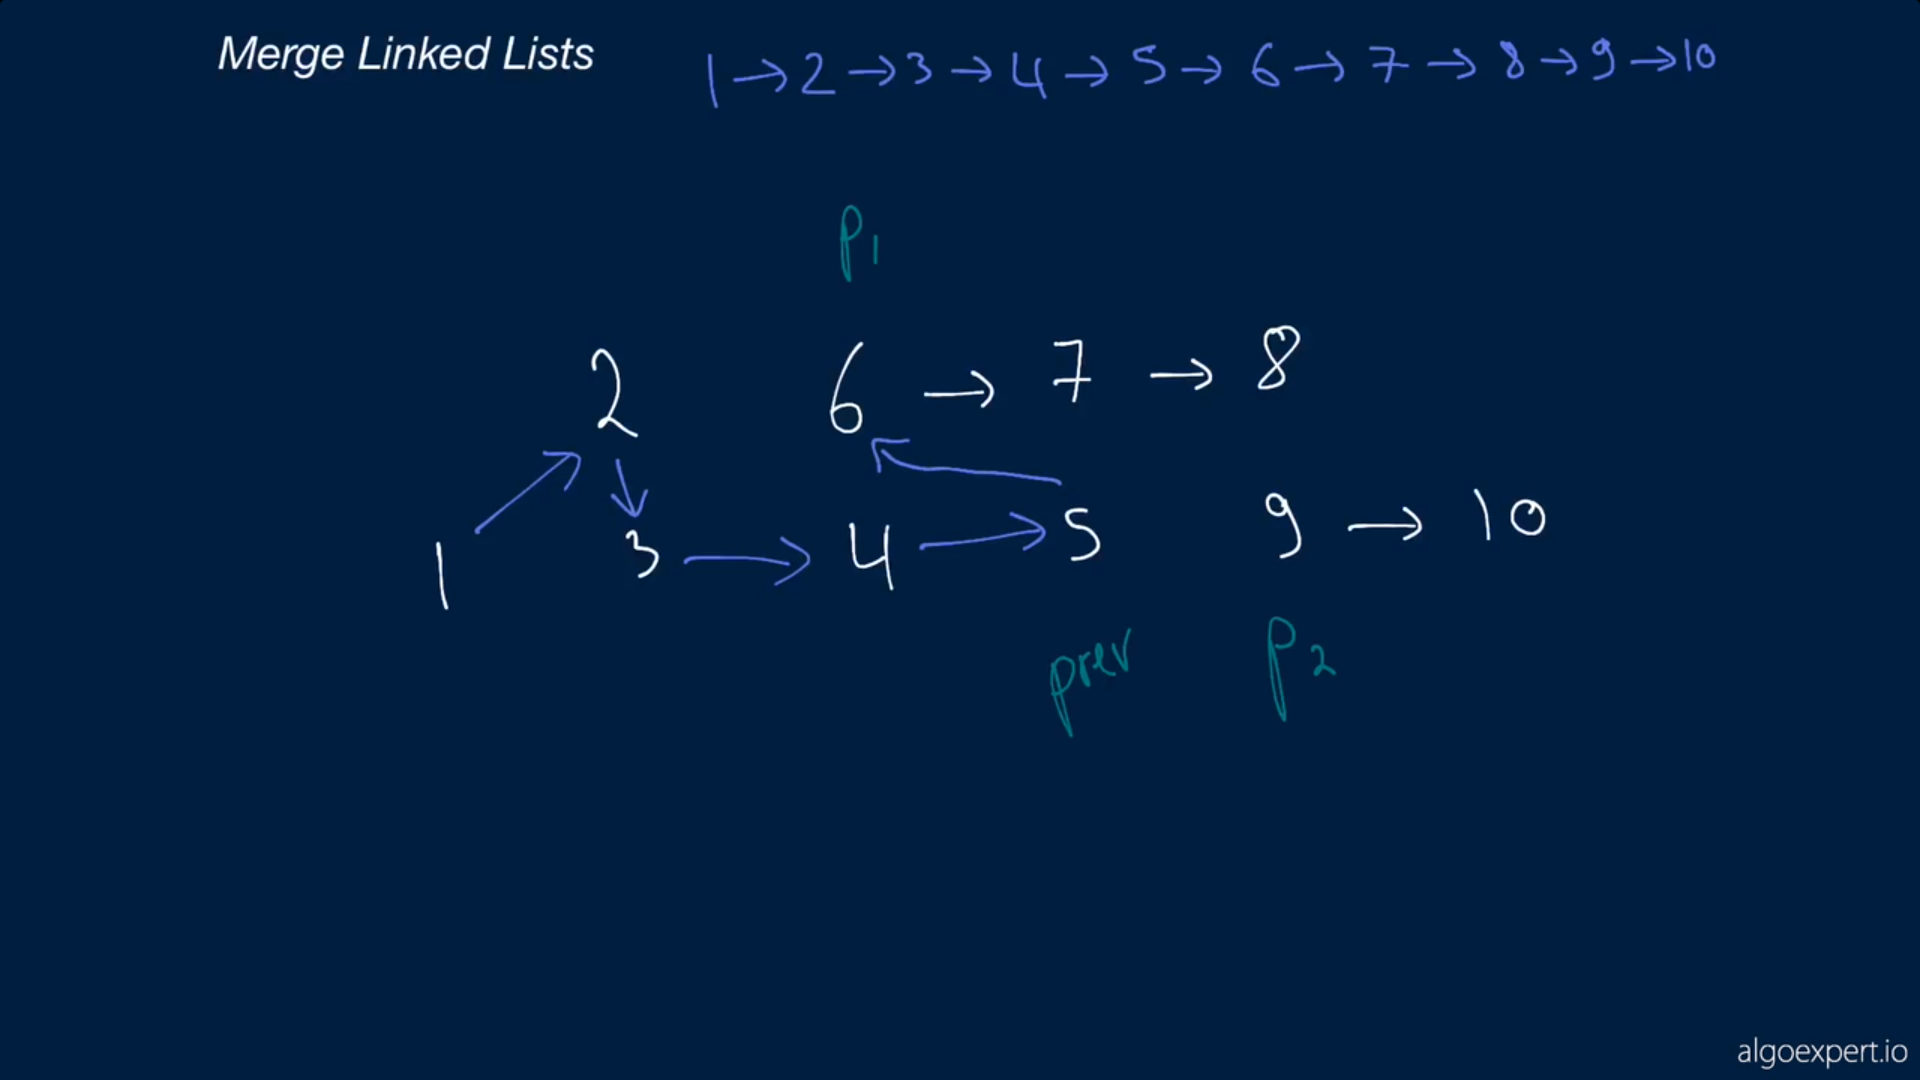 Merge Linked Lists
1 → 2 → 3 → 4 → 5 → 6 → 7 → 8 → 9 → 10
P1
2 6 → 7 → 8
1 3 → 4 → 5 9 → 10
prev P2
algoexpert.io